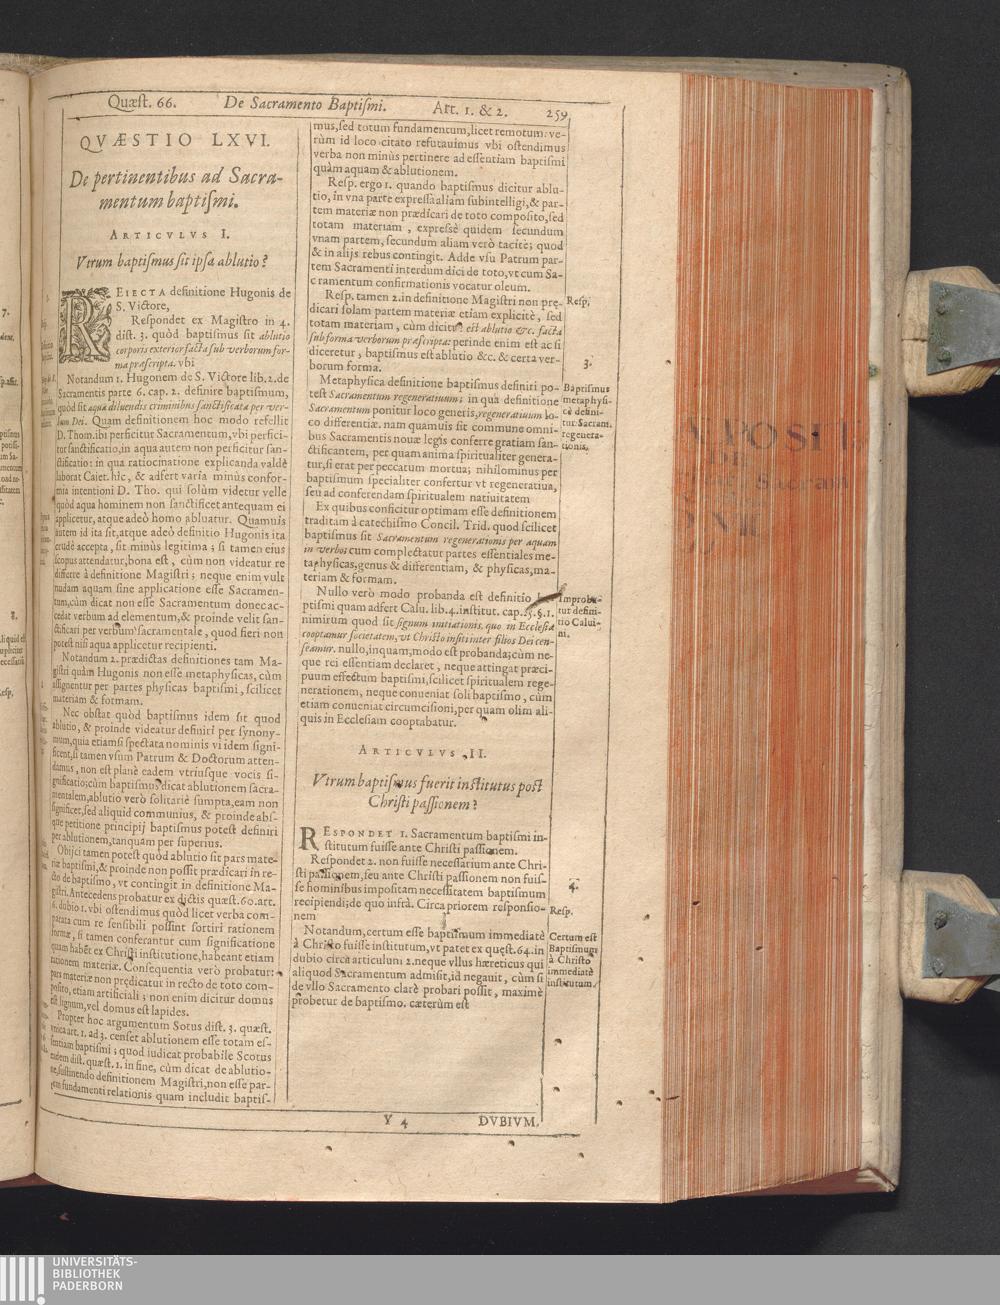 Quæst. 66. De Sacramento Baptiſmi. Art. 1. & 2. 259
QVÆSTIO LXVI.
De pertinentibus ad Sacra-
mentum baptiſmi.
ARTICVLVS I.
Vtrum baptiſmus ſit ipſa ablutio?
REIECTA definitione Hugonis de
S. Victore,
Reſpondet ex Magiſtro in 4.
diſt. 3. quòd baptiſmus ſit ablutio
corporis exterior facta ſub verborum for-
ma præſcripta. vbi
Notandum 1. Hugonem de S. Victore lib. 2. de
Sacramentis parte 6. cap. 2. definire baptiſmum,
quòd ſit aqua diluendis criminibus ſanctificata per ver-
bum Dei. Quam definitionem hoc modo refellit
D. Thom. ibi perficitur Sacramentum, vbi perfici-
tur ſanctificatio, in aqua autem non perficitur ſan-
ctificatio: in qua ratiocinatione explicanda valdè
laborat Caiet. hîc, & adfert varia minùs confor-
mia intentioni D. Tho. qui ſolùm videtur velle
quòd aqua hominem non ſanctificet antequam ei
applicetur, atque adeò homo abluatur. Quamuis
autem id ita ſit, atque adeò definitio Hugonis ita
crudè accepta, ſit minùs legitima; ſi tamen eius
ſcopus attendatur, bona eſt, cùm non videatur re
differre à definitione Magiſtri; neque enim vult
nudam aquam ſine applicatione eſſe Sacramen-
tum, cùm dicat non eſſe Sacramentum donec ac-
cedat verbum ad elementum, & proinde velit ſan-
ctificari per verbum ſacramentale, quod fieri non
poteſt niſi aqua applicetur recipienti.
Notandum 2. prædictas definitiones tam Ma-
giſtri quàm Hugonis non eſſe metaphyſicas, cùm
aſſignentur per partes phyſicas baptiſmi, ſcilicet
materiam & formam.
Nec obſtat quòd baptiſmus idem ſit quod
ablutio, & proinde videatur definiri per ſynony-
mum, quia etiamſi ſpectata nominis vi idem ſigni-
ficent, ſi tamen vſum Patrum & Doctorum atten-
damus, non eſt planè eadem vtriuſque vocis ſi-
gnificatio; cùm baptiſmus dicat ablutionem ſacra-
mentalem, ablutio verò ſolitariè ſumpta, eam non
ſignificet, ſed aliquid communius, & proinde abſ-
que petitione principij baptiſmus poteſt definiri
per ablutionem, tanquam per ſuperius.
Obijci tamen poteſt quòd ablutio ſit pars mate-
riæ baptiſmi, & proinde non poſſit prædicari in re-
cto de baptiſmo, vt contingit in definitione Ma-
giſtri. Antecedens probatur ex dictis quæſt. 60. art.
6. dubio 1. vbi oſtendimus quòd licet verba com-
parata cum re ſenſibili poſſint ſortiri rationem
formæ, ſi tamen conferantur cum ſignificatione
quam habet ex Chriſti inſtitutione, habeant etiam
rationem materiæ. Conſequentia verò probatur:
pars materiæ non prędicatur in recto de toto com-
poſito, etiam artificiali; non enim dicitur domus
eſt lignum, vel domus eſt lapides.
Propter hoc argumentum Sotus diſt. 3. quæſt.
vnica art. 1. ad 3. cenſet ablutionem eſſe totam eſ-
ſentiam baptiſmi; quod iudicat probabile Scotus
eadem diſt. quæſt. 1. in fine, cùm dicat de ablutio-
ne, ſuſtinendo definitionem Magiſtri, non eſſe par-
tem fundamenti relationis quam includit baptiſ-
mus, ſed totum fundamentum, licet remotum: ve-
rùm id loco citato refutauimus vbi oſtendimus
verba non minùs pertinere ad eſſentiam baptiſmi
quàm aquam & ablutionem.
Reſp. ergo 1. quando baptiſmus dicitur ablu-
tio, in vna parte expreſſa aliam ſubintelligi, & par-
tem materiæ non prædicari de toto compoſito, ſed
totam materiam, expreſsè quidem ſecundum
vnam partem, ſecundum aliam verò tacitè; quod
& in alijs rebus contingit. Adde vſu Patrum par-
tem Sacramenti interdum dici de toto, vt cum Sa-
cramentum confirmationis vocatur oleum.
Reſp. tamen 2. in definitione Magiſtri non prę-
dicari ſolam partem materiæ etiam explicitè, ſed
totam materiam, cùm dicitur eſt ablutio &c. facta
ſub forma verborum præſcripta: perinde enim eſt ac ſi
diceretur, baptiſmus eſt ablutio &c. & certa ver-
borum forma.
Metaphyſica definitione baptiſmus definiri po-
teſt Sacramentum regeneratiuum: in qua definitione
Sacramentum ponitur loco generis, regeneratiuum lo-
co differentiæ. nam quamuis ſit commune omni-
bus Sacramentis nouæ legis conferre gratiam ſan-
ctificantem, per quam anima ſpiritualiter genera-
tur, ſi erat per peccatum mortua; nihilominus per
baptiſmum ſpecialiter confertur vt regeneratiua,
ſeu ad conferendam ſpiritualem natiuitatem
Ex quibus conficitur optimam eſſe definitionem
traditam à catechiſmo Concil. Trid. quod ſcilicet
baptiſmus ſit Sacramentum regenerationis per aquam
in verbo: cum complectatur partes eſſentiales me-
taphyſicas, genus & differentiam, & phyſicas, ma-
teriam & formam.
Nullo verò modo probanda eſt definitio
ptiſmi quam adfert Calu. lib. 4. inſtitut. cap. 15. §. 1.
nimirum quod ſit ſignum initiationis, quo in Eccleſiæ
cooptamur ſocietatem, vt Chriſto inſiti inter filios Dei cen-
ſeamur. nullo, inquam, modo eſt probanda; cùm ne-
que rei eſſentiam declaret, neque attingat præci-
puum effectum baptiſmi, ſcilicet ſpiritualem rege-
nerationem, neque conueniat ſoli baptiſmo, cùm
etiam conueniat circumciſioni, per quam olim ali-
quis in Eccleſiam cooptabatur.
ARTICVLVS II.
Vtrum baptiſmus fuerit inſtitutus poſt
Chriſti paſſionem?
RESPONDET 1. Sacramentum baptiſmi in-
ſtitutum fuiſſe ante Chriſti paſſionem.
Reſpondet 2. non fuiſſe neceſſarium ante Chri-
ſti paſſionem, ſeu ante Chriſti paſſionem non fuiſ-
ſe hominibus impoſitam neceſſitatem baptiſmum
recipiendi; de quo infrà. Circa priorem reſponſio-
nem
Notandum, certum eſſe baptiſmum immediatè
à Chriſto fuiſſe inſtitutum, vt patet ex quęſt. 64. in
dubio circa articulum 2. neque vllus hæreticus qui
aliquod Sacramentum admiſit, id negauit, cùm ſi
de vllo Sacramento clarè probari poſſit, maximè
probetur de baptiſmo. cæterùm eſt
Reſp.
3.
Baptiſmus
metaphyſi-
cè defini-
tur Sacram.
regenera-
tionis.
Improba-
tur defini-
tio Calui-
ni.
4.
Reſp.
Certum eſt
Baptiſmum
à Chriſto
immediatè
inſtitutum.
Y 4 DVBIVM.
UNIVERSITÄTS-
BIBLIOTHEK
PADERBORN